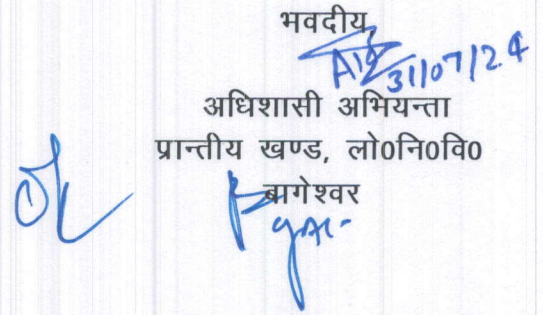 भवदीय,
31/07/24
अधिशासी अभियन्ता
प्रान्तीय खण्ड, लो0नि0वि0
बागेश्वर